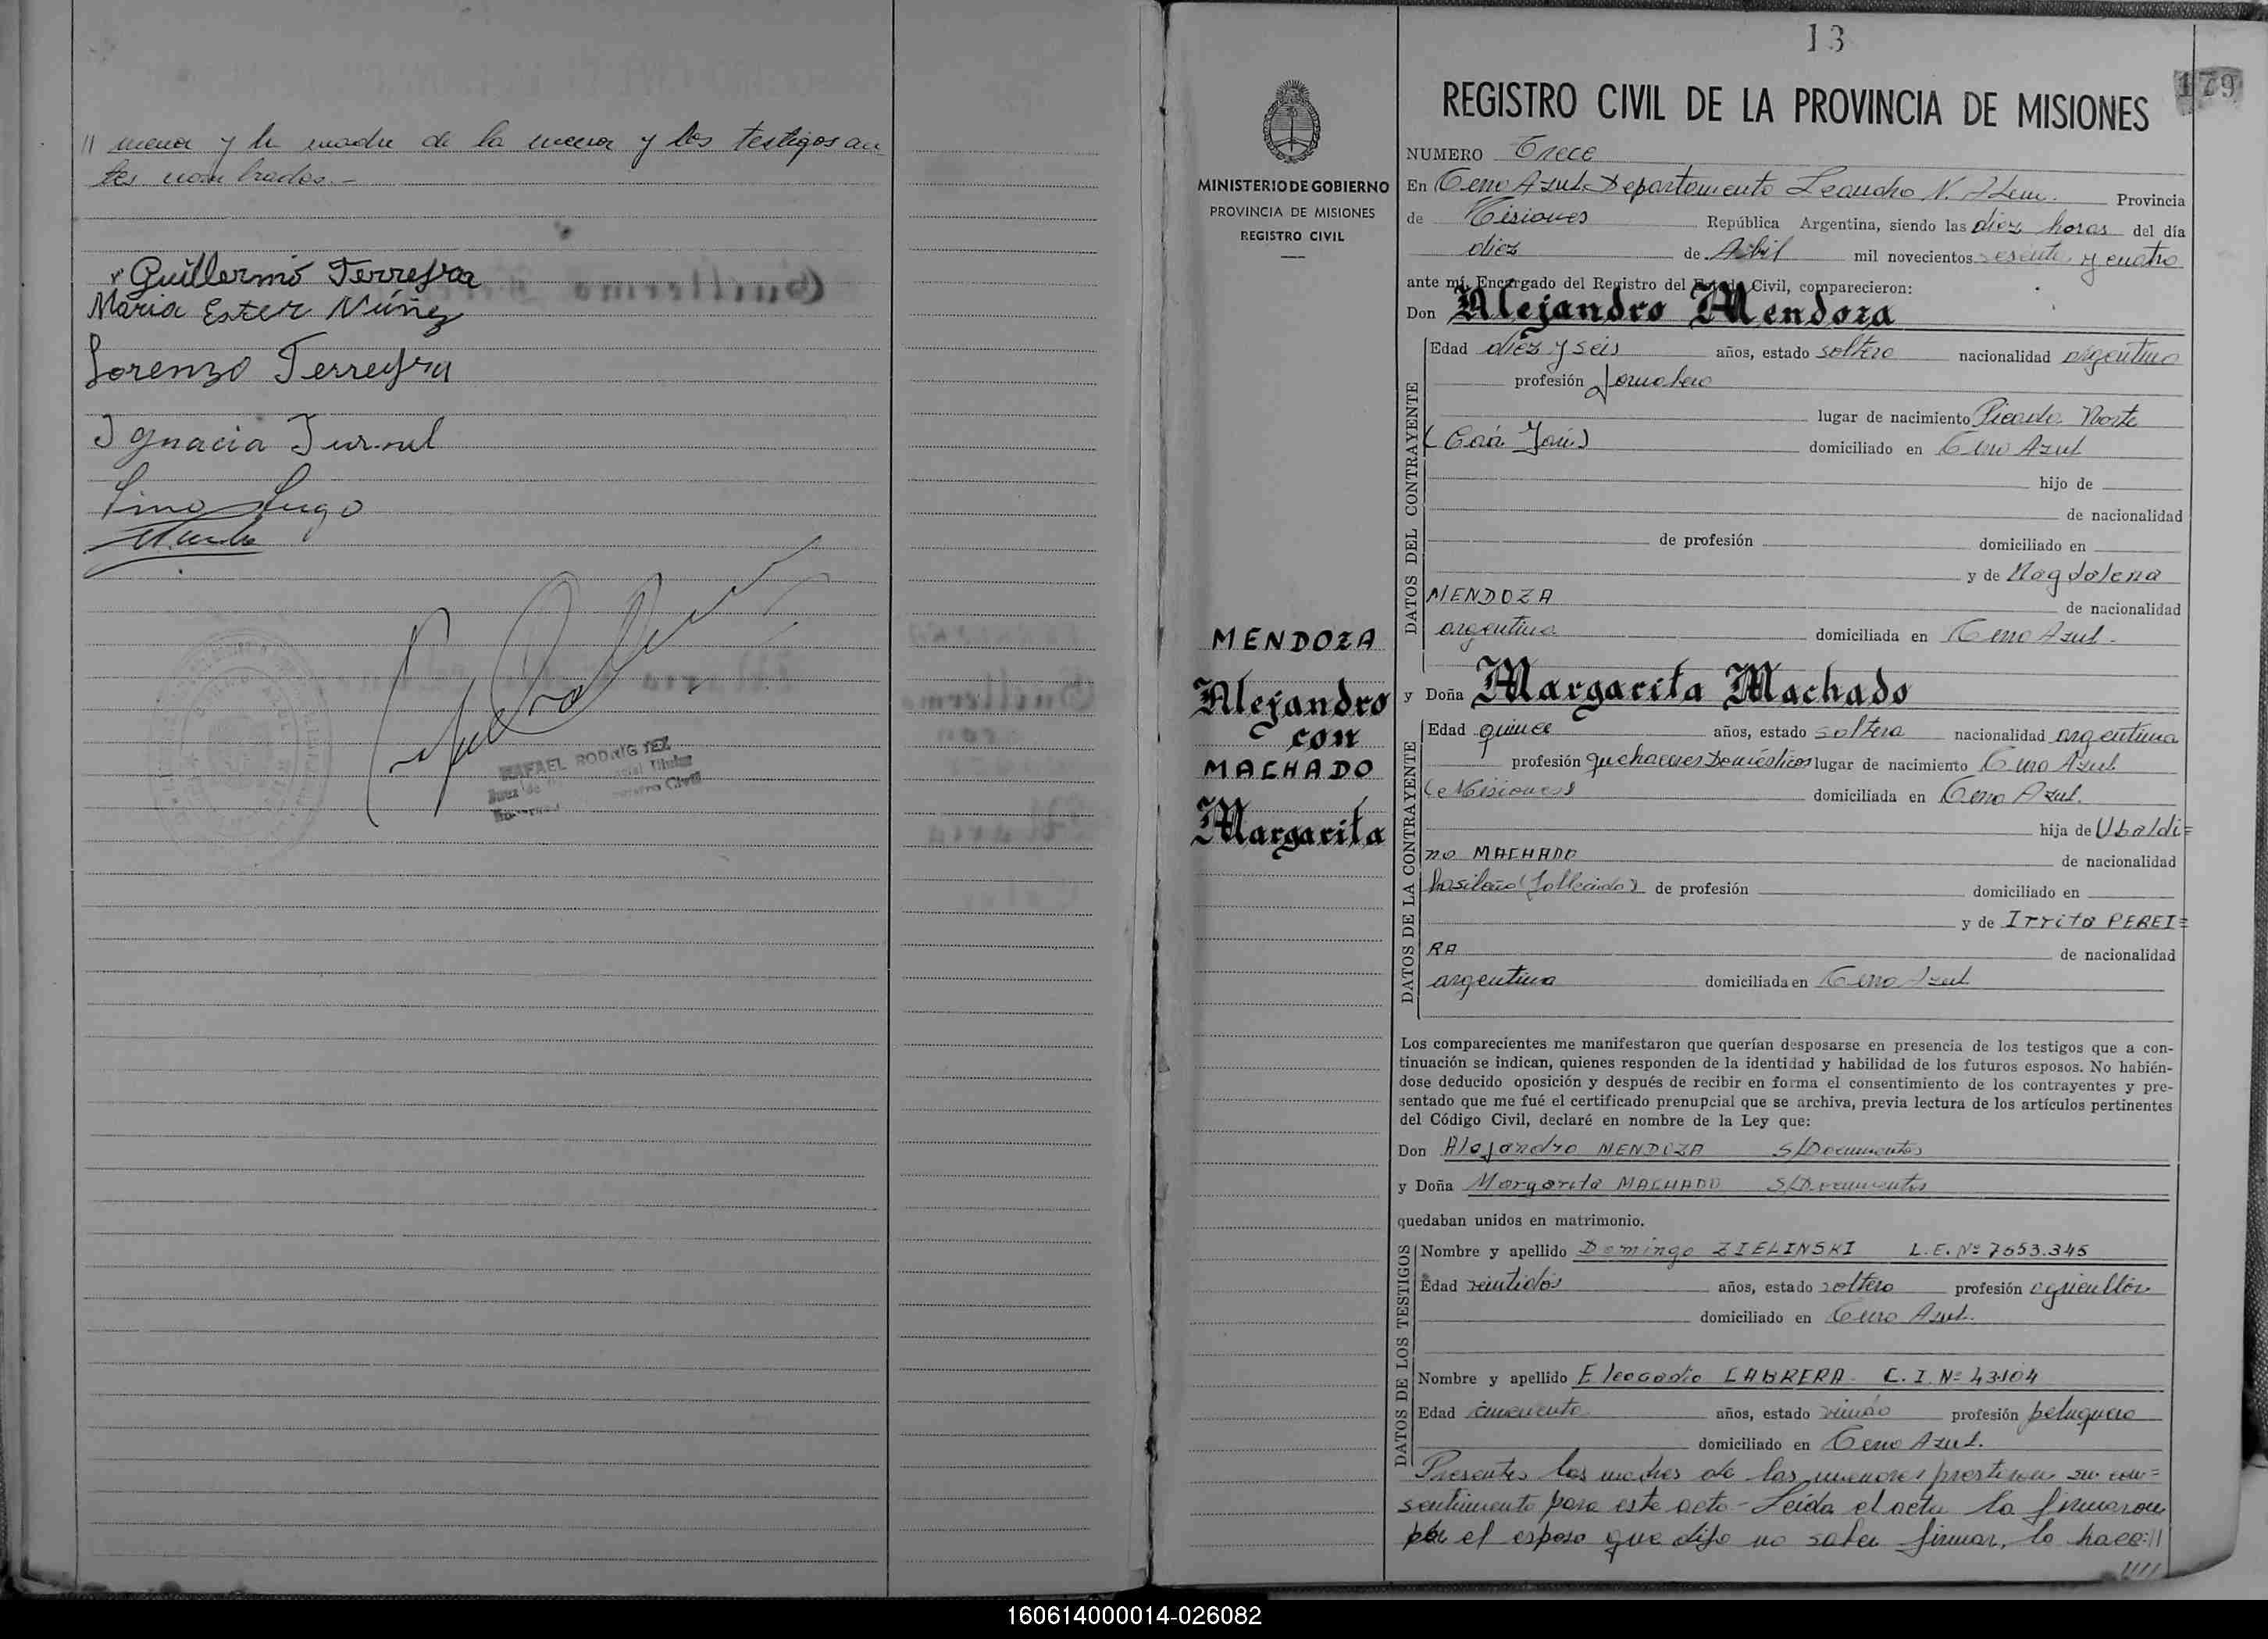 // menor y la madre de la menor y los testigos an
tes nombrados.-
Guillermo Ferreyra
Maria Ester Núñez
Lorenzo Ferreyra
Ignacia
Lino Lugo
RAFAEL RODRIGUEZ
Juez de
Titular
Registro Civil
13
179
REGISTRO CIVIL DE LA PROVINCIA DE MISIONES
MINISTERIO DE GOBIERNO
PROVINCIA DE MISIONES
REGISTRO CIVIL
MENDOZA
Alejandro
con
MACHADO
Margarita
NUMERO Trece
En Cerro Azul Departamento Leandro N. Alem. Provincia
de Misiones República Argentina, siendo las diez horas del día
diez de Abril mil novecientos sesenta y cuatro
ante mí, Encargado del Registro del Estado Civil, comparecieron:
Don Alejandro Mendoza
DATOS DEL CONTRAYENTE
Edad diez y seis años, estado soltero nacionalidad argentina
profesión Jornalero
lugar de nacimiento Picada Norte
(Caá Yarí) domiciliado en Cerro Azul
hijo de
de nacionalidad
de profesión domiciliado en
y de Magdalena
MENDOZA de nacionalidad
argentina domiciliada en Cerro Azul.
y Doña Margarita Machado
DATOS DE LA CONTRAYENTE
Edad quince años, estado soltera nacionalidad argentina
profesión quehaceres Domésticos lugar de nacimiento Cerro Azul
(Misiones) domiciliada en Cerro Azul.
hija de Ubaldi=
no MACHADO de nacionalidad
brasileño (fallecido) de profesión domiciliado en
y de Irrita PEREI=
RA de nacionalidad
argentina domiciliada en Cerro Azul
Los comparecientes me manifestaron que querían desposarse en presencia de los testigos que a con-
tinuación se indican, quienes responden de la identidad y habilidad de los futuros esposos. No habién-
dose deducido oposición y después de recibir en forma el consentimiento de los contrayentes y pre-
sentado que me fué el certificado prenupcial que se archiva, previa lectura de los artículos pertinentes
del Código Civil, declaré en nombre de la Ley que:
Don Alejandro MENDOZA S/Documentos
y Doña Margarita MACHADO S/Documentos
quedaban unidos en matrimonio.
DATOS DE LOS TESTIGOS
Nombre y apellido Domingo ZIELINSKI L.E. Nº 7553.345
Edad veintidós años, estado soltero profesión agricultor
domiciliado en Cerro Azul.
Nombre y apellido Eleogadio CABRERA C.I. Nº 43104
Edad cincuenta años, estado viudo profesión peluquero
domiciliado en Cerro Azul.
Presentes las madres de los menores prestaron su con=
sentimiento para este acto- Leída el acta la firmaron
por el esposo que dijo no saber firmar, lo hace://
////
160614000014-026082